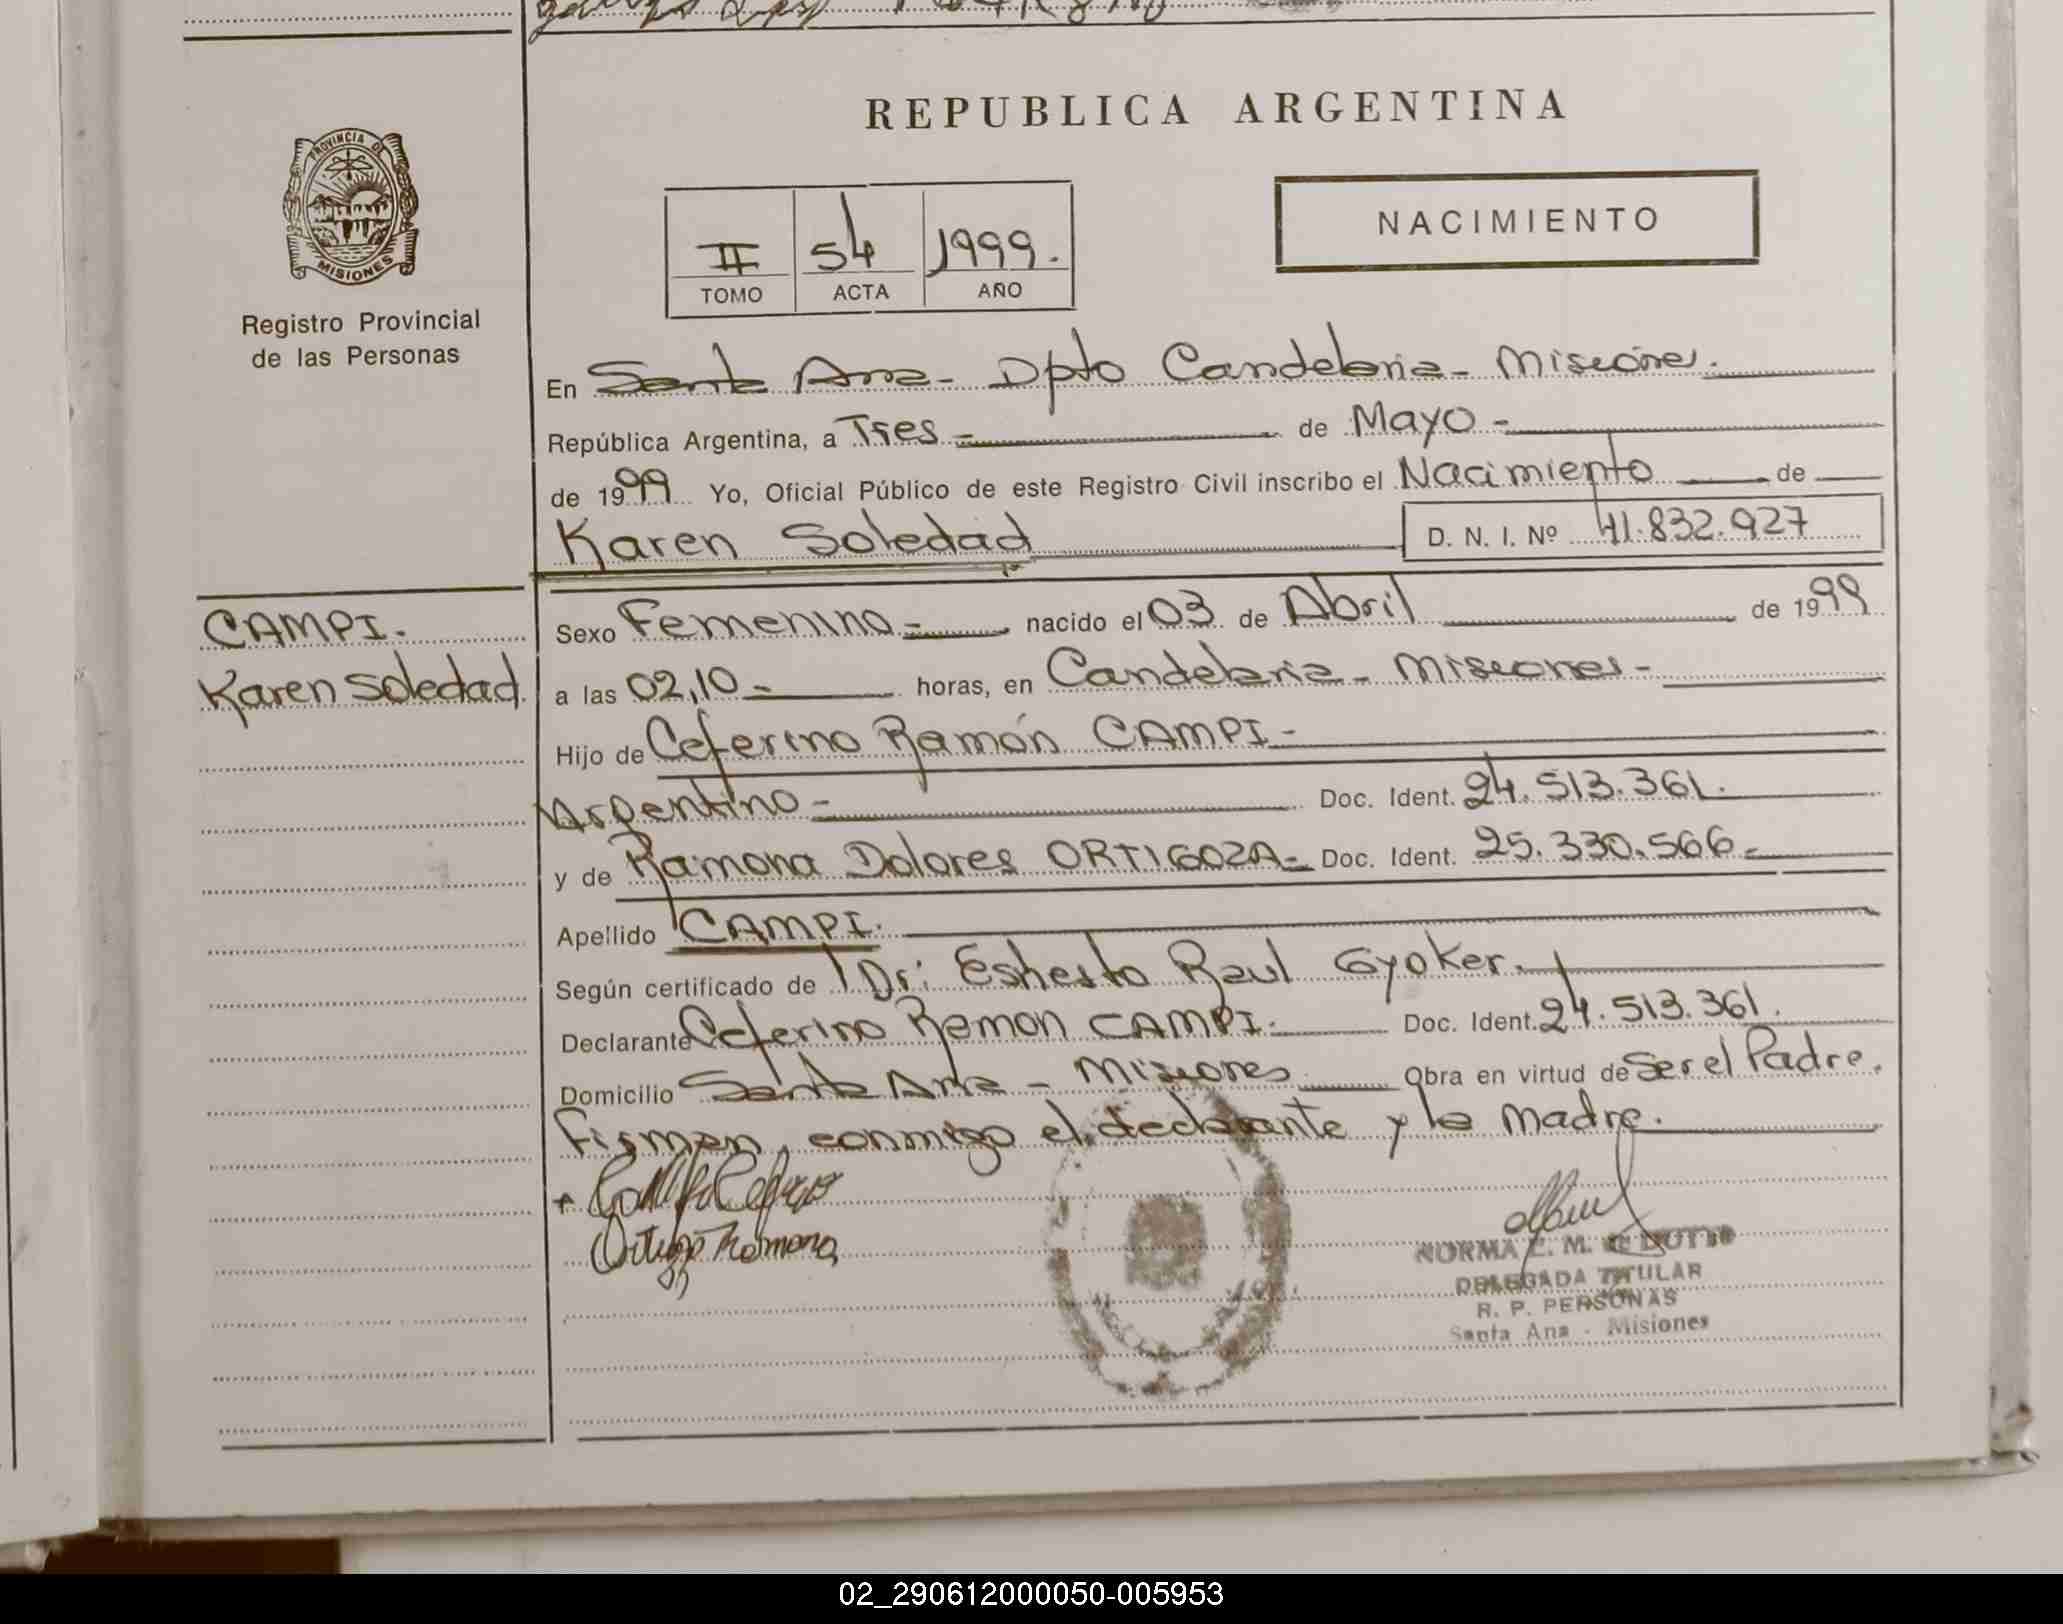 REPUBLICA ARGENTINA
PROVINCIA DE
MISIONES
Registro Provincial
de las Personas
II 54 1999.
TOMO ACTA AÑO
NACIMIENTO
En Santa Ana - Dpto Candelaria - Misiones.
República Argentina, a Tres - de Mayo -
de 1999 Yo, Oficial Público de este Registro Civil inscribo el Nacimiento de
Karen Soledad D. N. I. Nº 41.832.927
CAMPI.
Karen Soledad
Sexo Femenino - nacido el 03 de Abril de 1999
a las 02,10 - horas, en Candelaria - Misiones -
Hijo de Ceferino Ramón CAMPI -
Argentino - Doc. Ident. 24.513.361.
y de Ramona Dolores ORTIGOZA - Doc. Ident. 25.330.566 -
Apellido CAMPI.
Según certificado de Dr: Ernesto Raul Gyoker.
Declarante Ceferino Ramon CAMPI. Doc. Ident. 24.513.361.
Domicilio Santa Ana - Misiones Obra en virtud de Ser el Padre.
Firman, conmigo el declarante y la madre.
Ramona
NORMA
DELEGADA TITULAR
R. P. PERSONAS
Santa Ana - Misiones
02_290612000050-005953